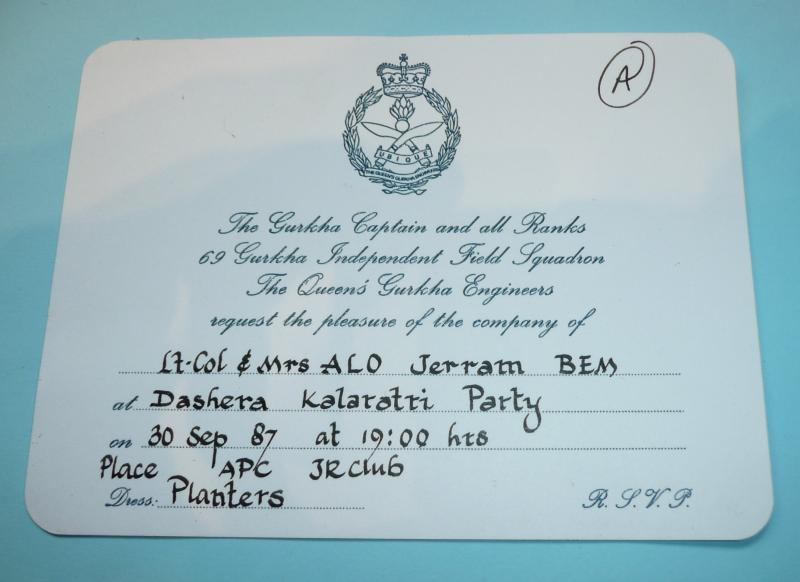 A
UBIQUE
THE QUEEN'S GURKHA ENGINEERS
The Gurkha Captain and all Ranks
69 Gurkha Independent Field Squadron
The Queen's Gurkha Engineers
request the pleasure of the company of
Lt-Col & Mrs ALO Jerram BEM
at Dashera Kalaratri Party
on 30 Sep 87 at 19:00 hrs
Place APC JRClub
Dress: Planters R. S. V. P.